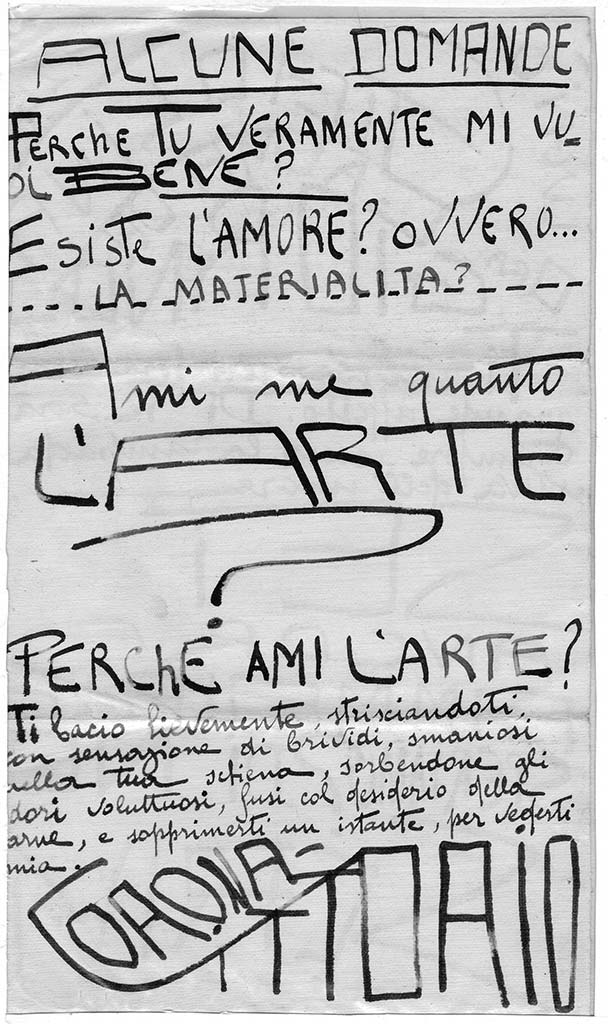 ALCUNE DOMANDE
PERCHE TU VERAMENTE MI VU-
OI BENE?
Esiste L'AMORE? OVVERO...
....LA MATERIALITA?
Ami me quanto
L'ARTE
?
PERChE AMI L'ARTE?
Ti bacio lievemente, strisciandoti,
con sensazione di brividi, smaniosi
nella tua schiena, sorbendone gli
odori voluttuosi, fusi col desiderio della
carne, e sopprimerti un istante, per vederti
mia.
CORONA-